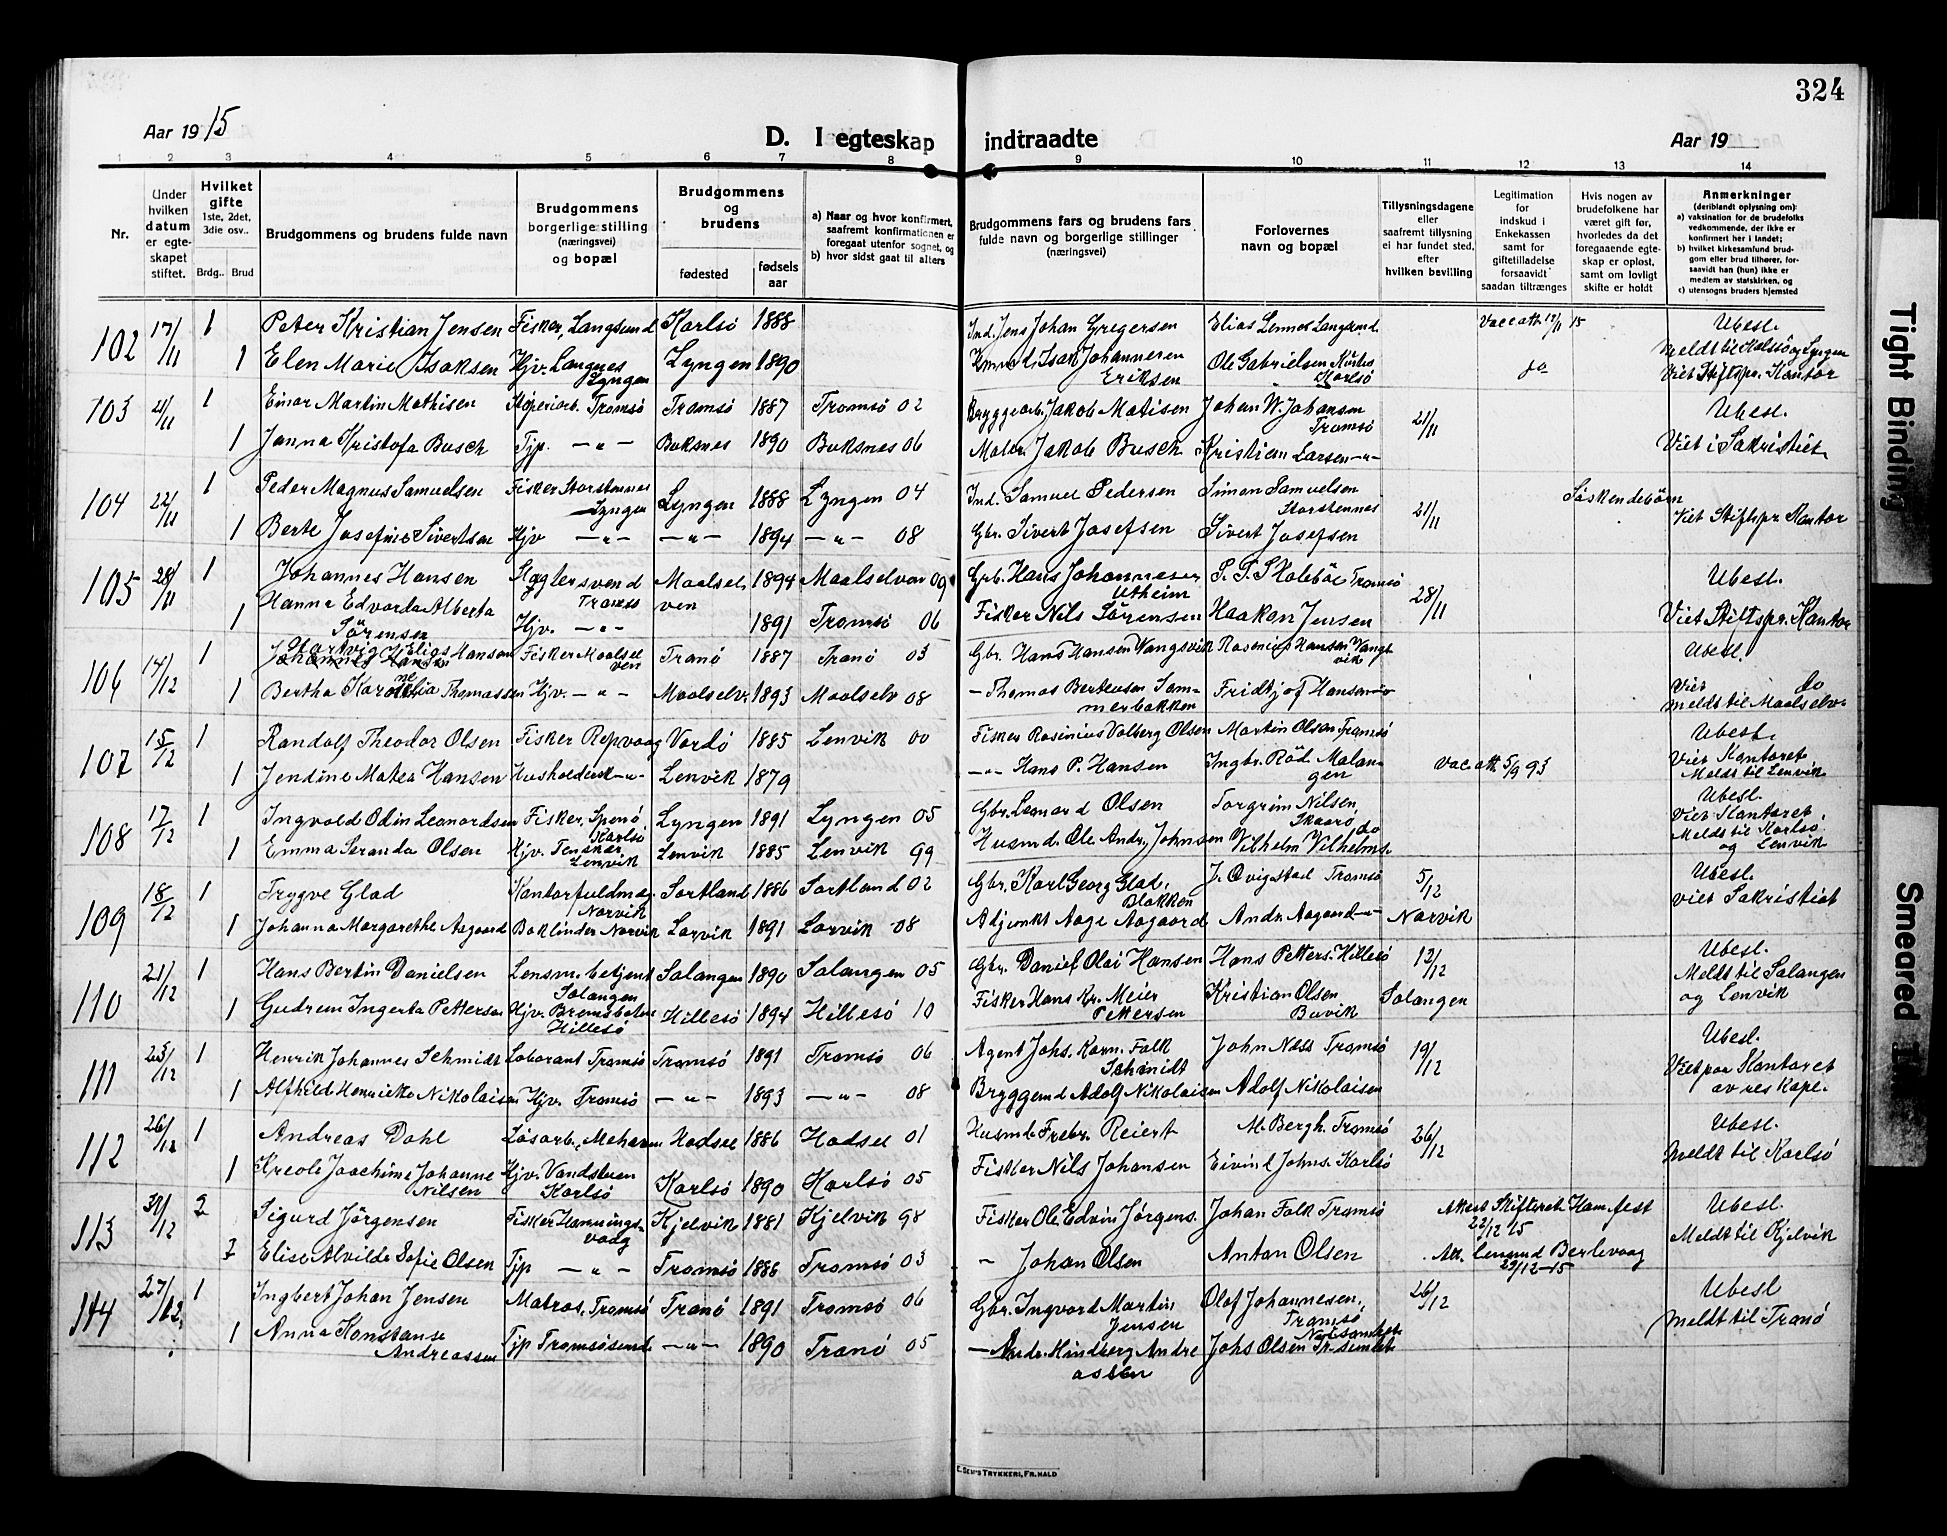 324
Aar 1915
D. I egteskap indtraadte
Aar 19
1 2 3 4 5 6 7 8 9 10 11 12 13 14
Nr.
Under hvilken datum er egteskapet stiftet.
Hvilket gifte 1ste, 2det, 3die osv..
Brdg.. Brud
Brudgommens og brudens fulde navn
Brudgommens borgerlige stilling (næringsvei) og bopæl
Brudgommens og brudens
fødested fødsels aar
a) Naar og hvor konfirmert, saafremt konfirmationen er foregaat utenfor sognet, og
b) hvor sidst gaat til alters
Brudgommens fars og brudens fars fulde navn og borgerlige stillinger (næringsvei)
Forlovernes navn og bopæl
Tillysningsdagene eller saafremt tillysning ei har fundet sted, efter hvilken bevilling
Legitimation for indskud i Enkekassen samt for giftetilladelse forsaavidt saadan tiltrænges
Hvis nogen av brudefolkene har været gift før, hvorledes da det foregaaende egteskap er opløst, samt om lovligt skifte er holdt
Anmerkninger (deriblandt oplysning om):
a) vaksination for de brudefolks vedkommende, der ikke er konfirmert her i landet;
b) hvilket kirkesamfund brudgom eller brud tilhører, forsaavidt han (hun) ikke er medlem av statskirken, og
c) utensogns bruders hjemsted
102 17/11 1 Peter Kristian Jensen Fisker, Langsund Karlsö 1888 Ind. Jens Johan Gregersen Elias Lennes Langsund. Vac att 17/11 15 Ubesl.
1 Elen Marie Isaksen Hjv. Langnes Lyngen Lyngen 1890 Isak Johannesen Eriksen Ole Gabrielsen Karlsö do Meldt til Kalsö og Lyngen Viet Stiftspr. Kontor
103 21/11 1 Einar Martin Mathisen Tromsö Tromsö 1887 Tromsö 02 Bryggearb. Jakob Matisen Johan W. Johansen Tromsö 21/11 Ubesl.
1 Janna Kristofa Busch Tjp. — " — Buksnes 1890 Buksnes 06 Maler Jakob Busch Kristian Larsen —"— Viet i Sakristiet
104 22/11 1 Peder Magnus Samuelsen Fisker Storstennes Lyngen Lyngen 1888 Lyngen 04 Ind. Samuel Pedersen Simon Samuelsen Storstennes 21/11 Söskendebörn
1 Berte Josefine Sivertsen Hjv — " — — " — 1894 — " — 08 Gbr. Sivert Josefsen Sivert Josefsen Viet Stiftspr Kontor
105 28/11 1 Johannes Hansen Slagtersvend Tromsö Maalselven 1894 Maalselven 09 Grb. Hans Johannesen Utheim S. P. Skoleböe Tromsö 28/11 Ubesl.
1 Hanna Edvarda Alberta Sörensen Hjv. — " — 1891 Tromsö 06 Fisker Nils Sörensen Haakon Jensen Viet Stiftspr. Kontor
106 14/12 1 Hartvig Elias Hansen Fisker Maalselven Tranö 1887 Tranö 03 Gbr. Hans Hansen Vangsvik Rosenius Hansen Vangsvik Ubesl.
1 Bertha Karoline Thomassen Hjv. — " — Maalselv. 1893 Maalselv 08 — Thomas Berteusen Sommerbakken Fridtjof Hansen —"— Viet do Meldt til Maalselv.
107 15/12 1 Randolf Theodor Olsen Fisker Repvaag Vardö 1885 Lenvik 00 Fisker Rosinius Volberg Olsen Martin Olsen Tromsö Ubesl.
1 Jendine Matea Hansen Husholderske —"— Lenvik 1879 —"— Hans P. Hansen Ingbr. Röd Malangen Vac att 5/9 93 Viet Kontoret Meldt til Lenvik
108 17/12 1 Ingvald Odin Leonardsen Fisker, Spenö Karlsö Lyngen 1891 Lyngen 05 Gbr. Leonard Olsen Torgrim Nilsen, Skaarö Ubesl. Viet Kontoret.
1 Emma Seranda Olsen Hjv. Tenskjær Lenvik Lenvik 1885 Lenvik 99 Husmd. Ole Andr. Johnsen Vilhelm Vilhelms. do Meldt til Karlsö og Lenvik
109 18/12 1 Trygve Glad Kontorfuldmæg Narvik Sortland 1886 Sortland 02 Gbr. Karl Georg Glad, Blokken J. Qvigstad Tromsö 5/12 Ubesl. viet Sakristiet
1 Johanna Margarethe Aagaard Boklinder Narvik Larvik 1891 Larvik 08 Adjunkt Aage Aagaard Andr. Aagaard —"— Narvik
110 21/12 1 Hans Bertin Danielsen Lensm. betjent Salangen Salangen 1890 Salangen 05 Gbr. Daniel Olai Hansen Hans Petters. Hillesö 12/12 Ubesl. Meldt til Salangen og Lenvik
1 Gudrun Ingerta Pettersen Hjv. Hillesö Hillesö 1894 Hillesö 10 Fisker Hans Kr. Meier Pettersen Kristian Olsen Buvik Salangen
111 23/12 1 Henrik Johannes Schmidt Laborant Tromsö Tromsö 1891 Tromsö 06 Agent Johs. Korn. Falk Schmidt John Næss Tromsö 19/12 Ubesl.
1 Alfhild Henriette Nikolaisen Hjv. Tromsö — " — 1893 — " — 08 Bryggemd Adolf Nikolaisen Adolf Nikolaisen Viet paa Kontoret av res kape.
112 26/12 1 Andreas Dahl Lösarb. Mehavn Hadsel 1886 Hadsel 01 Husmd. Fredr. Reiert M. Bergh. Tromsö 26/12 Ubesl.
1 Kreole Joachime Johanne Nilsen Hjv. Vandstuen Karlsö Karlsö 1890 Karlsö 05 Fisker Nils Johansen Eivind Johns. Karlsö Meldt til Karlsö
113 30/12 2 Sigurd Jörgensen Fisker Honningsvaag Kjelvik 1881 Kjelvik 98 Fisker Ole Edvin Jörgens. Johan Falk Tromsö Attest Skifteret Hamfest 22/12 15 Ubesl. Meldt til Kjelvik
Elise Alvilde Sofie Olsen Tjp — " — Tromsö 1888 Tromsö 03 — Johan Olsen Anton Olsen Att. Lensmd Berlevaag 29/12–15
114 27/12. 1 Ingbert Johan Jensen Matros, Tromsö Tranö 1891 Tromsö 06 Gbr. Ingvard Martin Jensen Olaf Johannesen, Tromsö 26/12 Ubesl Meldt til Tranö
1 Anna Konstanse Andreassen Tjp Tromsösund — " — 1890 Tranö 05 — Andr. Hindberg Andreassen Johs Olsen
E. SEM'S TRYKKERI, FR.HALD
Tight Binding
Smeared